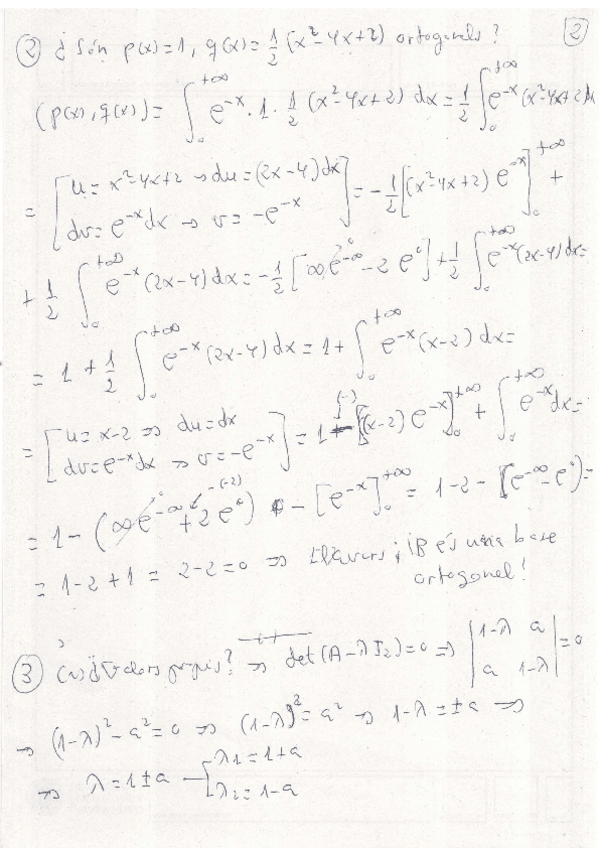 ② ¿ Són p(x)=1, q(x)= 1/2 (x²-4x+2) ortogonals? [2]
(p(x), q(x)) = ∫₀^{+∞} e^{-x} · 1 · 1/2 (x²-4x+2) dx = 1/2 ∫₀^{+∞} e^{-x} (x²-4x+2) dx
= [u = x²-4x+2 → du = (2x-4)dx ; dv = e^{-x}dx → v = -e^{-x}] = -1/2 [(x²-4x+2) e^{-x}]₀^{+∞} +
+ 1/2 ∫₀^{+∞} e^{-x} (2x-4) dx = -1/2 [∞e^{-∞} - 2 e⁰] + 1/2 ∫₀^{+∞} e^{-x} (2x-4) dx =
= 1 + 1/2 ∫₀^{+∞} e^{-x} (2x-4) dx = 1 + ∫₀^{+∞} e^{-x} (x-2) dx =
= [u = x-2 ⇒ du = dx ; dv = e^{-x}dx ⇒ v = -e^{-x}] = 1 (-) [(x-2) e^{-x}]₀^{+∞} + ∫₀^{+∞} e^{-x} dx =
= 1 - (∞e^{-∞} + 2 e⁰) - [e^{-x}]₀^{+∞} = 1-2 - [e^{-∞} - e⁰) =
= 1-2+1 = 2-2 = 0 ⇒ Llavors ¡ B és una base
ortogonal!
③ (a) ¿Valors propis? ⇒ det(A-λI₂)=0 ⇒ |1-λ a ; a 1-λ| = 0
⇒ (1-λ)² - a² = 0 ⇒ (1-λ)² = a² ⇒ 1-λ = ±a ⇒
⇒ λ = 1±a — [λ₁ = 1+a ; λ₂ = 1-a